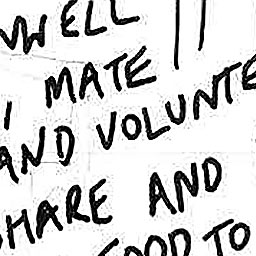 WELL
, MATE
AND VOLUNTE
SHARE AND
FOOD TO